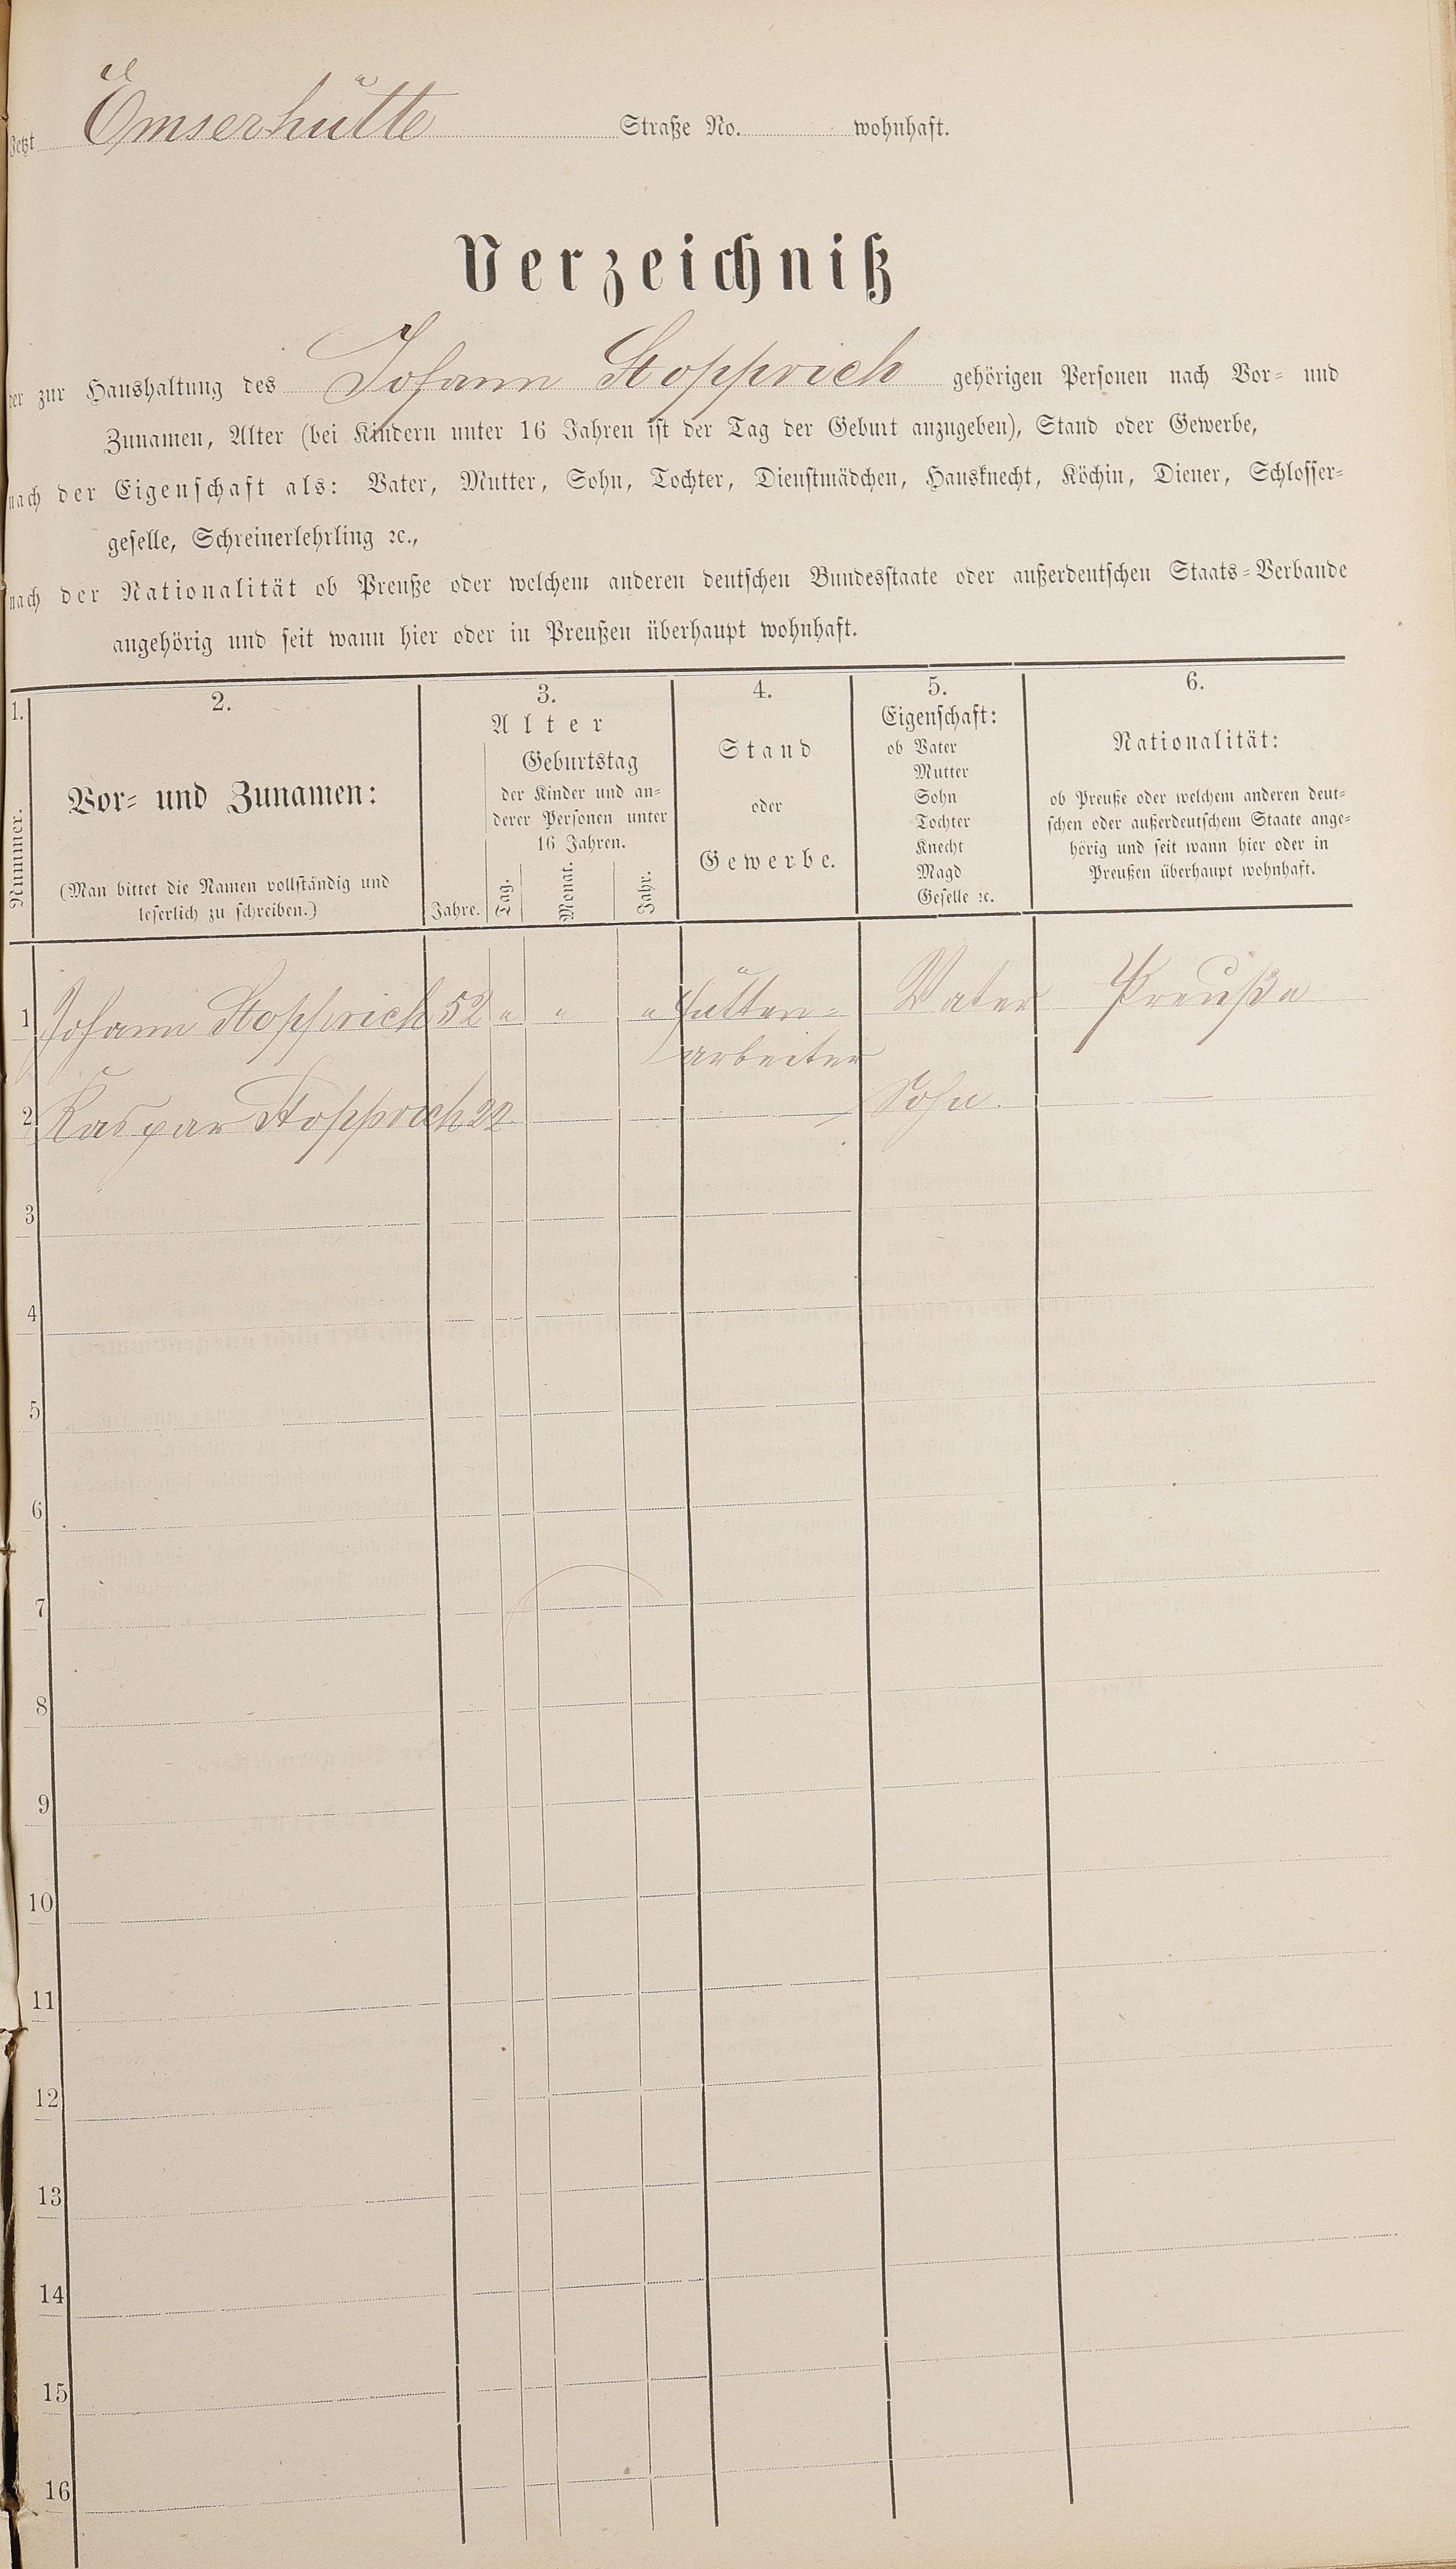 Jetzt Emserhütte Straße No. wohnhaft.
Verzeichniß
der zur Haushaltung des Johann Stopprich gehörigen Personen nach Vor- und
Zunamen, Alter (bei Kindern unter 16 Jahren ist der Tag der Geburt anzugeben), Stand oder Gewerbe,
nach der Eigenschaft als: Vater, Mutter, Sohn, Tochter, Dienstmädchen, Hausknecht, Köchin, Diener, Schlosser-
geselle, Schreinerlehrling ꝛc.,
nach der Nationalität ob Preuße oder welchem anderen deutschen Bundesstaate oder außerdeutschen Staats-Verbande
angehörig und seit wann hier oder in Preußen überhaupt wohnhaft.
1.
Nummer.
2.
Vor- und Zunamen:
(Man bittet die Namen vollständig und
leserlich zu schreiben.)
3.
Alter
Jahre.
Geburtstag
der Kinder und an-
derer Personen unter
16 Jahren.
Tag. Monat. Jahr.
4.
Stand
oder
Gewerbe.
5.
Eigenschaft:
ob Vater
Mutter
Sohn
Tochter
Knecht
Magd
Geselle ꝛc.
6.
Nationalität:
ob Preuße oder welchem anderen deut-
schen oder außerdeutschem Staate ange-
hörig und seit wann hier oder in
Preußen überhaupt wohnhaft.
1 Johann Stopprich 52 " " " Hütten- Vater Preuße
arbeiter
2 Kaspar Stopprich 22 — — Sohn. —
3
4
5
6
7
8
9
10
11
12
13
14
15
16